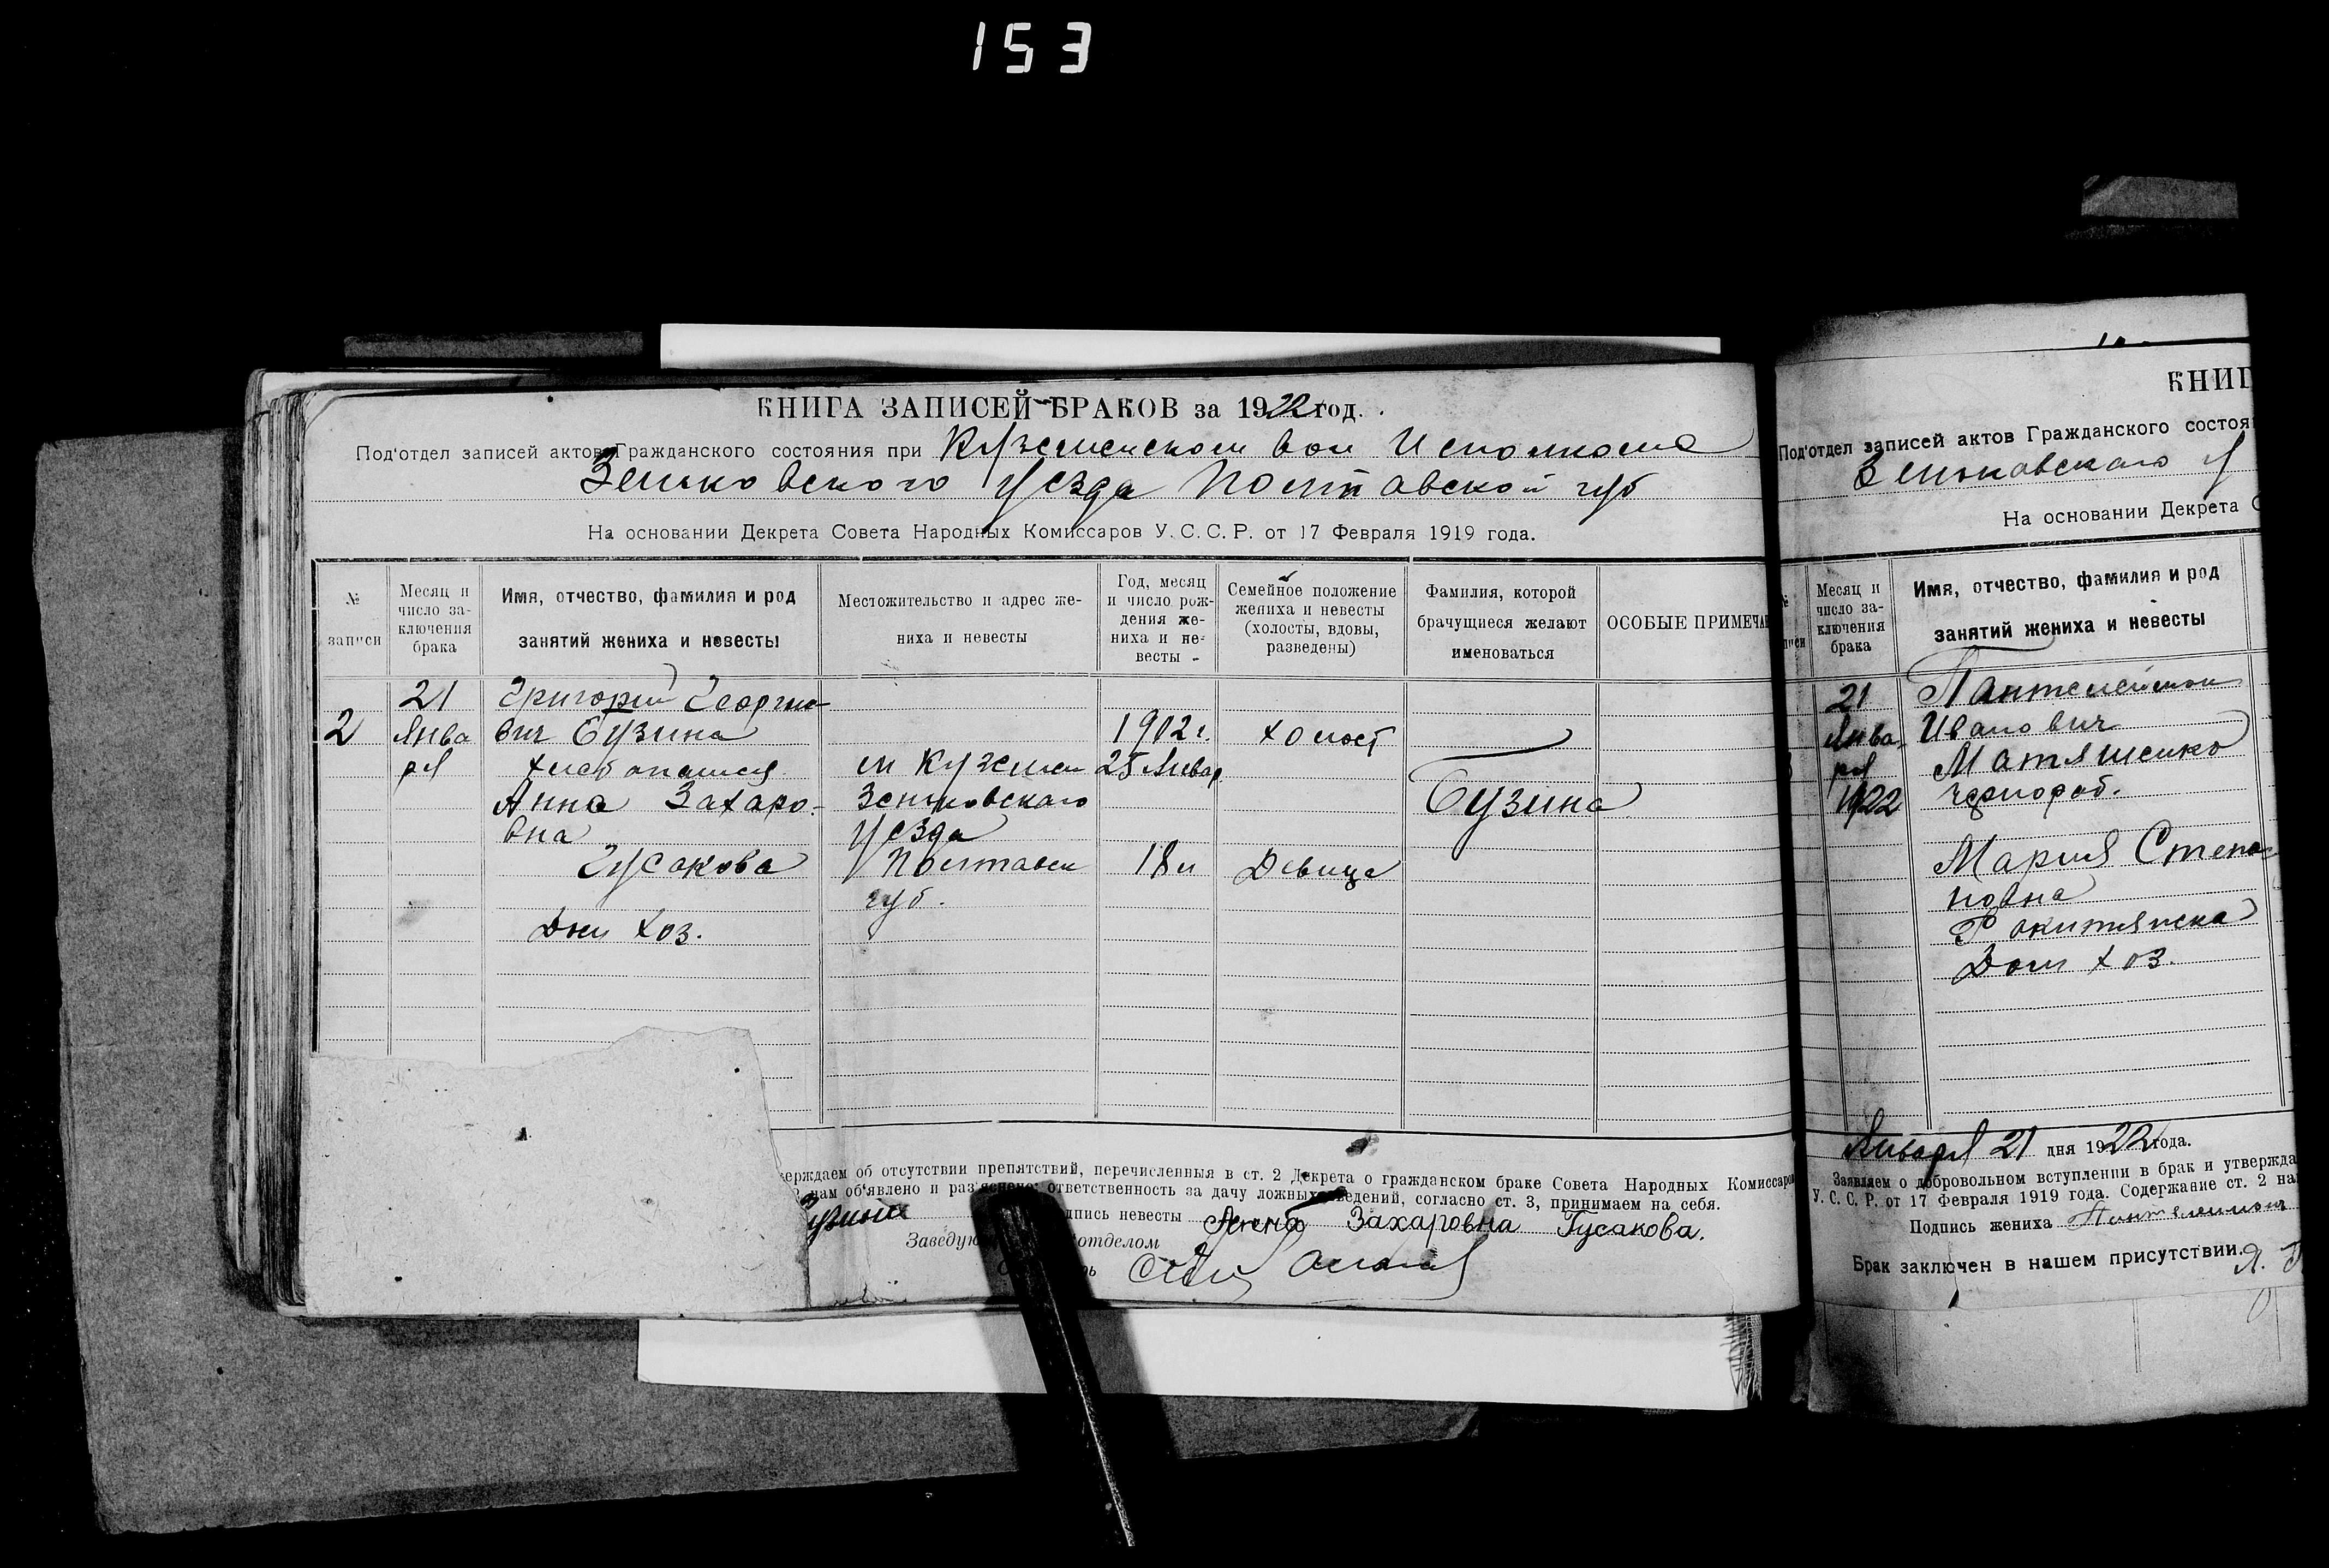 153
КНИГА ЗАПИСЕЙ БРАКОВ за 1922 год.
Под'отдел записей актов Гражданского состояния при Куземенском вол Исполкома
Зеньковского уезда Полтавской губ
На основании Декрета Совета Народных Комиссаров У. С. С. Р. от 17 Февраля 1919 года.
№ записи
Месяц и число заключения брака
Имя, отчество, фамилия и род занятий жениха и невесты
Местожительство и адрес жениха и невесты
Год, месяц и число рождения жениха и невесты
Семейное положение жениха и невесты (холосты, вдовы, разведены)
Фамилия, которой брачущиеся желают именоваться
ОСОБЫЕ ПРИМЕЧА
21 Григорий Георгие-
2 Янва вич Бузина 1902 г. холост
ря хлебопашец м Куземен 25 Январ
Анна Захаро- Зеньковскаго Бузина
вна уезда
Гусакова Полтавск 18 л Девица
губ.
Дом хоз.
верждаем об отсутствии препятствий, перечисленныя в ст. 2 Декрета о гражданском браке Совета Народных Комиссаров
нам об'явлено и раз'яснено; ответственность за дачу ложных сведений, согласно ст. 3, принимаем на себя.
дпись невесты Захаровна Гусакова.
Заведую отделом
КНИГ
Под'отдел записей актов Гражданского состоя
Зеньковскаго у
На основании Декрета С
Месяц и число заключения брака
Имя, отчество, фамилия и род занятий жениха и невесты
21 Пантелеймон
Янва- Иванович
ря Матяшенко
1922 чернораб.
Мария Степа-
новна
Рокитянска
Дом хоз.
Января 21 дня 1922 года.
Заявляем о добровольном вступлении в брак и утвержда
У. С. С. Р. от 17 Февраля 1919 года. Содержание ст. 2 на
Подпись жениха Пантелеимон
Брак заключен в нашем присутствии.